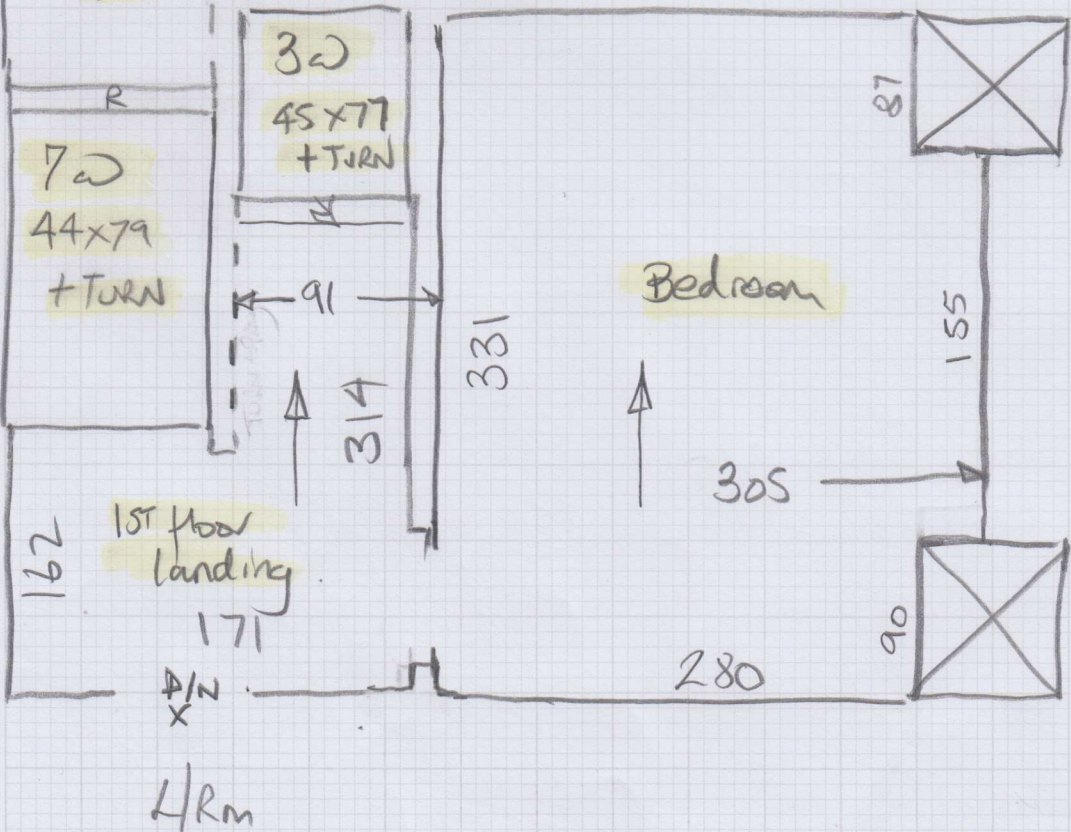 R
7W
44x79
+ TURN
3W
45x77
+ TURN
91
314
331
Bedroom
87
155
305
90
280
1ST floor
landing
162
171
L/Rm